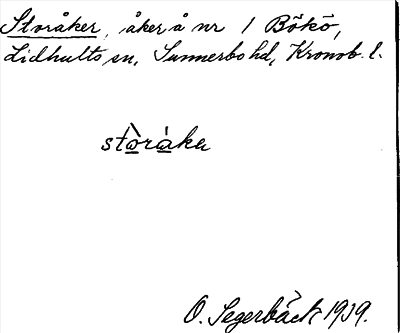 Storåker, åker å nr 1 Bökö,
Lidhults sn, Sunnerbo hd, Kronob. l.
stòràka
O. Segerbäck 1919.